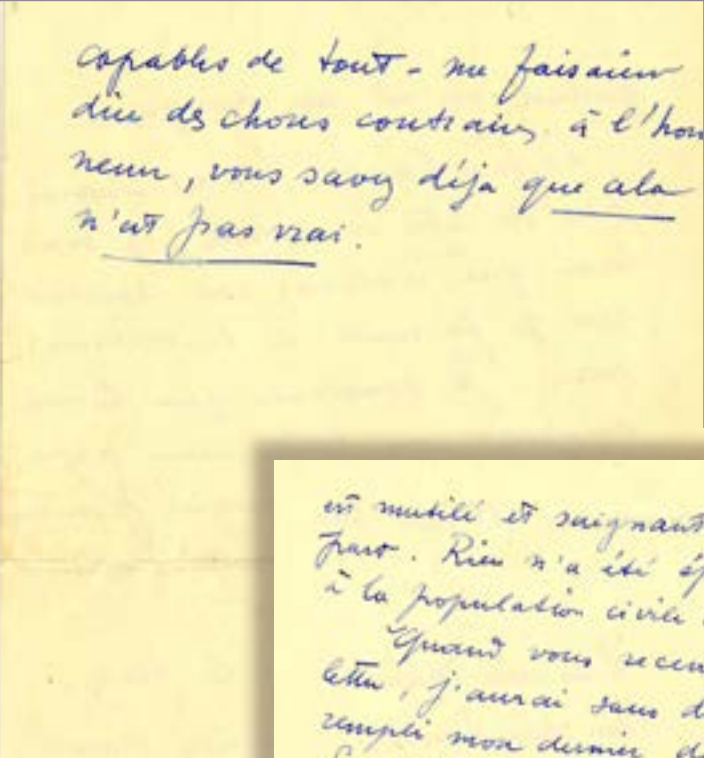 capables de tout - me faisaient
dire des choses contraires à l'hon
neur, vous savez déja que cela
n'est pas vrai.
est mutilé et saignant
part. Rien n'a été ép
à la population civile
Quand vous recev
lettre, j'aurai sans d
rempli mon dernier d